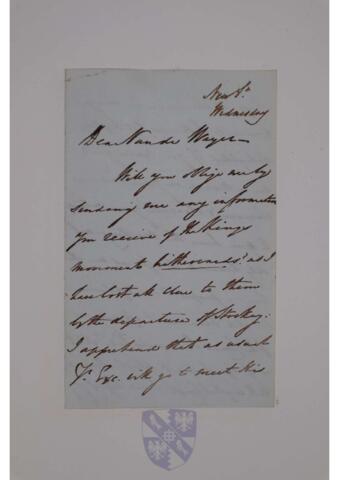 New St.
Wednesday
Dear Van de Weyer—
Will you oblige me by
sending me any information
you receive of the Kings
movements hitherwards? as I
have lost all clue to them
by the departure of Stockmar.
I apprehend that as usual
Yr. Exc. will go to meet His